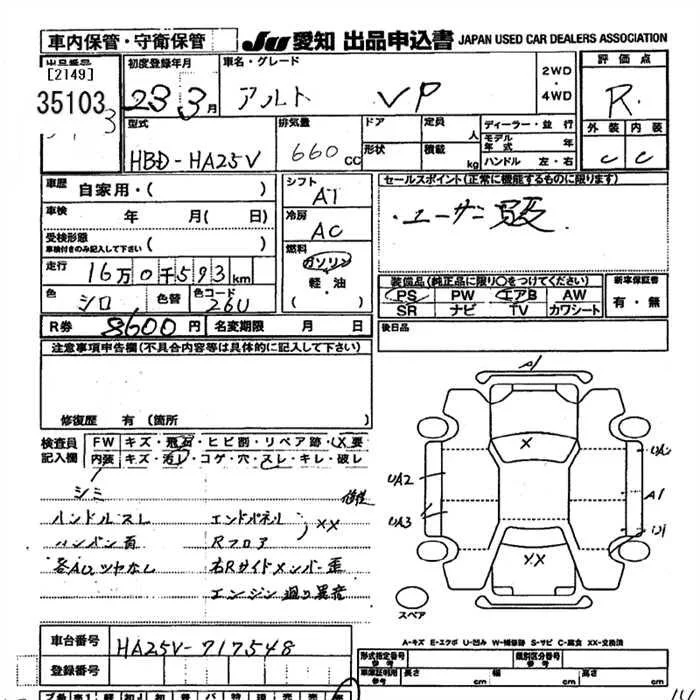 車内保管・守衛保管
JU 愛知 出品申込書 JAPAN USED CAR DEALERS ASSOCIATION
出品番号 初度登録年月 車名・グレード 2WD・4WD 評価点
[2149]
35103 23 3月 アルト VP R
型式 排気量 ドア 定員 人 ディーラー・並行 外装 内装
HBD-HA25V 660 CC 形状 積載 kg モデル年式 年 C C
ハンドル 左・右
車歴 自家用・( ) シフト AT セールスポイント(正常に機能するものに限ります)
車検 年 月( 日) 冷房 AC ・ユーザー買取
受検形態 車検付きのみ記入して下さい ( ) 燃料
走行 16万0千593km ガソリン・軽油
色 シロ 色替 色コード 26U ・( )
装備品(純正品に限り○をつけてください) 新車保証書
PS PW エアB AW 有・無
SR ナビ TV カワシート
R券 8600円 名変期限 月 日 後日品
注意事項申告欄(不具合内容等は具体的に記入して下さい)
修復歴 有(箇所
検査員記入欄 FW キズ・飛石・ヒビ割・リペア跡・X要
内装 キズ・汚レ・コゲ・穴・スレ・キレ・破レ
シミ
ハンドルスレ エンドパネル
Rフロア XX
各AWツヤなし 右Rサイドメンバー歪
エンジン廻り異音
A1
X
UA2
UA3
A1
XX
スペア
A-キズ E-エクボ U-凹み W-補修跡 S-サビ C-腐食 XX-交換済
車台番号 HA25V-717548
登録番号
形式指定番号 参考 類別区分番号 参考
車庫証明利用 参考 長さ cm 幅 cm 高さ cm